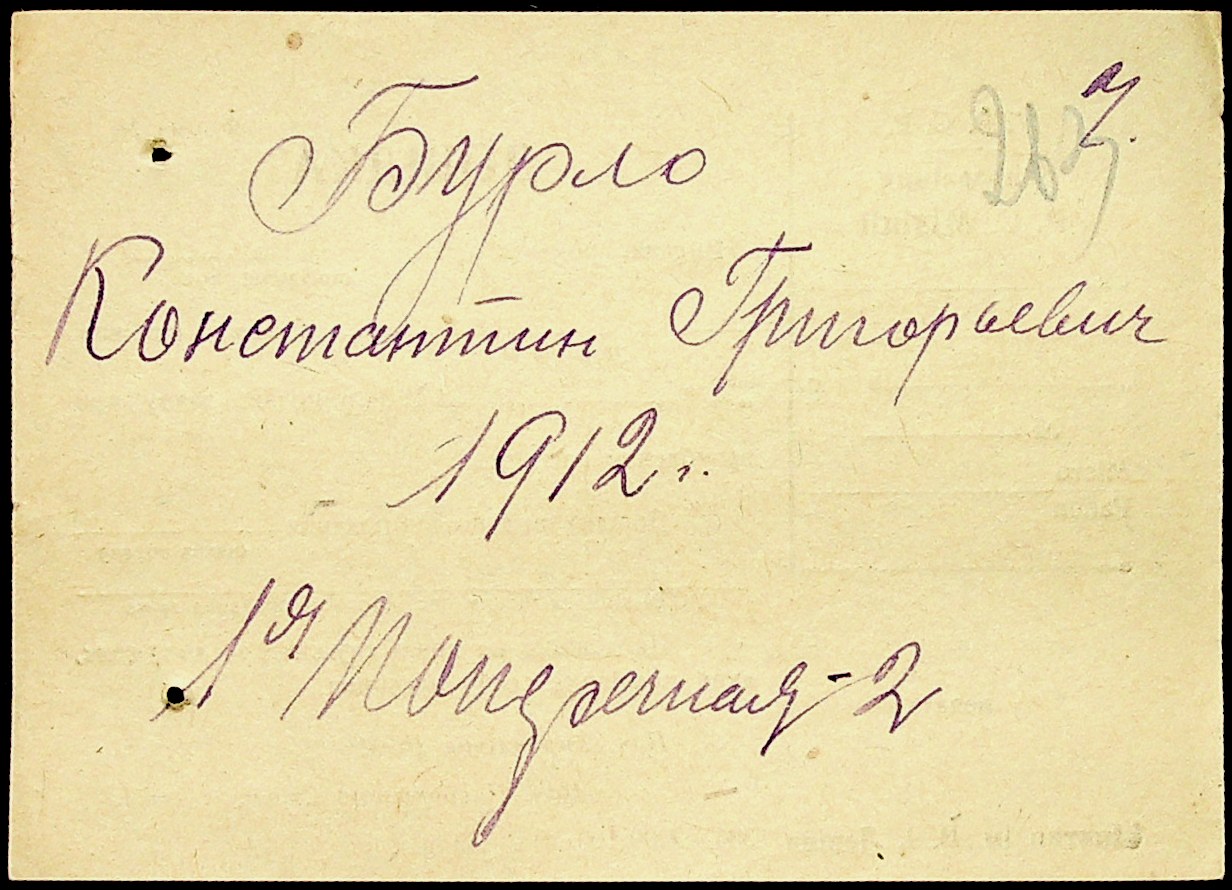 7.
267
Бурло
Константин Григорьевич
1912 г.
1я -2